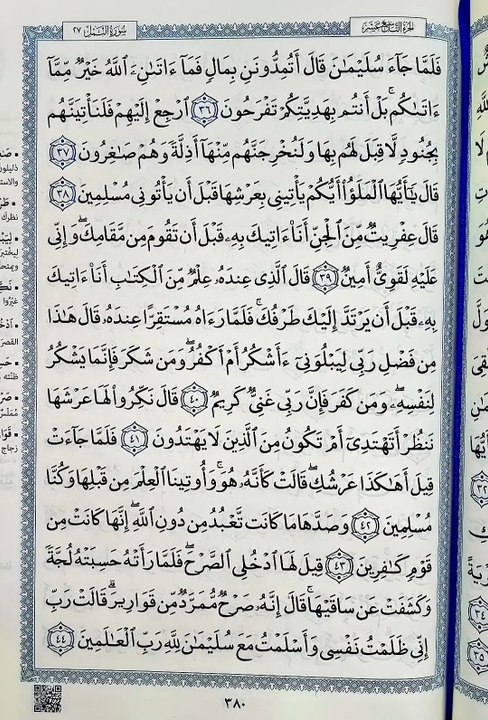 سُورَةُ النَّمْلِ ٢٧
الجُزْءُ التَّاسِعَ عَشَرَ
فَلَمَّا جَآءَ سُلَيْمَٰنَ قَالَ أَتُمِدُّونَنِ بِمَالٍ فَمَآ ءَاتَىٰنِۦَ ٱللَّهُ خَيْرٌ مِّمَّآ
ءَاتَىٰكُم ۚ بَلْ أَنتُم بِهَدِيَّتِكُمْ تَفْرَحُونَ ٣٦ ٱرْجِعْ إِلَيْهِمْ فَلَنَأْتِيَنَّهُم
بِجُنُودٍ لَّا قِبَلَ لَهُم بِهَا وَلَنُخْرِجَنَّهُم مِّنْهَآ أَذِلَّةً وَهُمْ صَٰغِرُونَ ٣٧
قَالَ يَٰٓأَيُّهَا ٱلْمَلَؤُا۟ أَيُّكُمْ يَأْتِينِى بِعَرْشِهَا قَبْلَ أَن يَأْتُونِى مُسْلِمِينَ ٣٨
قَالَ عِفْرِيتٌ مِّنَ ٱلْجِنِّ أَنَا۠ ءَاتِيكَ بِهِۦ قَبْلَ أَن تَقُومَ مِن مَّقَامِكَ ۖ وَإِنِّى
عَلَيْهِ لَقَوِىٌّ أَمِينٌ ٣٩ قَالَ ٱلَّذِى عِندَهُۥ عِلْمٌ مِّنَ ٱلْكِتَٰبِ أَنَا۠ ءَاتِيكَ
بِهِۦ قَبْلَ أَن يَرْتَدَّ إِلَيْكَ طَرْفُكَ ۚ فَلَمَّا رَءَاهُ مُسْتَقِرًّا عِندَهُۥ قَالَ هَٰذَا
مِن فَضْلِ رَبِّى لِيَبْلُوَنِىٓ ءَأَشْكُرُ أَمْ أَكْفُرُ ۖ وَمَن شَكَرَ فَإِنَّمَا يَشْكُرُ
لِنَفْسِهِۦ ۖ وَمَن كَفَرَ فَإِنَّ رَبِّى غَنِىٌّ كَرِيمٌ ٤٠ قَالَ نَكِّرُوا۟ لَهَا عَرْشَهَا
نَنظُرْ أَتَهْتَدِىٓ أَمْ تَكُونُ مِنَ ٱلَّذِينَ لَا يَهْتَدُونَ ٤١ فَلَمَّا جَآءَتْ
قِيلَ أَهَٰكَذَا عَرْشُكِ ۖ قَالَتْ كَأَنَّهُۥ هُوَ ۚ وَأُوتِينَا ٱلْعِلْمَ مِن قَبْلِهَا وَكُنَّا
مُسْلِمِينَ ٤٢ وَصَدَّهَا مَا كَانَت تَّعْبُدُ مِن دُونِ ٱللَّهِ ۖ إِنَّهَا كَانَتْ مِن
قَوْمٍ كَٰفِرِينَ ٤٣ قِيلَ لَهَا ٱدْخُلِى ٱلصَّرْحَ ۖ فَلَمَّا رَأَتْهُ حَسِبَتْهُ لُجَّةً
وَكَشَفَتْ عَن سَاقَيْهَا ۚ قَالَ إِنَّهُۥ صَرْحٌ مُّمَرَّدٌ مِّن قَوَارِيرَ ۗ قَالَتْ رَبِّ
إِنِّى ظَلَمْتُ نَفْسِى وَأَسْلَمْتُ مَعَ سُلَيْمَٰنَ لِلَّهِ رَبِّ ٱلْعَٰلَمِينَ ٤٤
٣٨٠